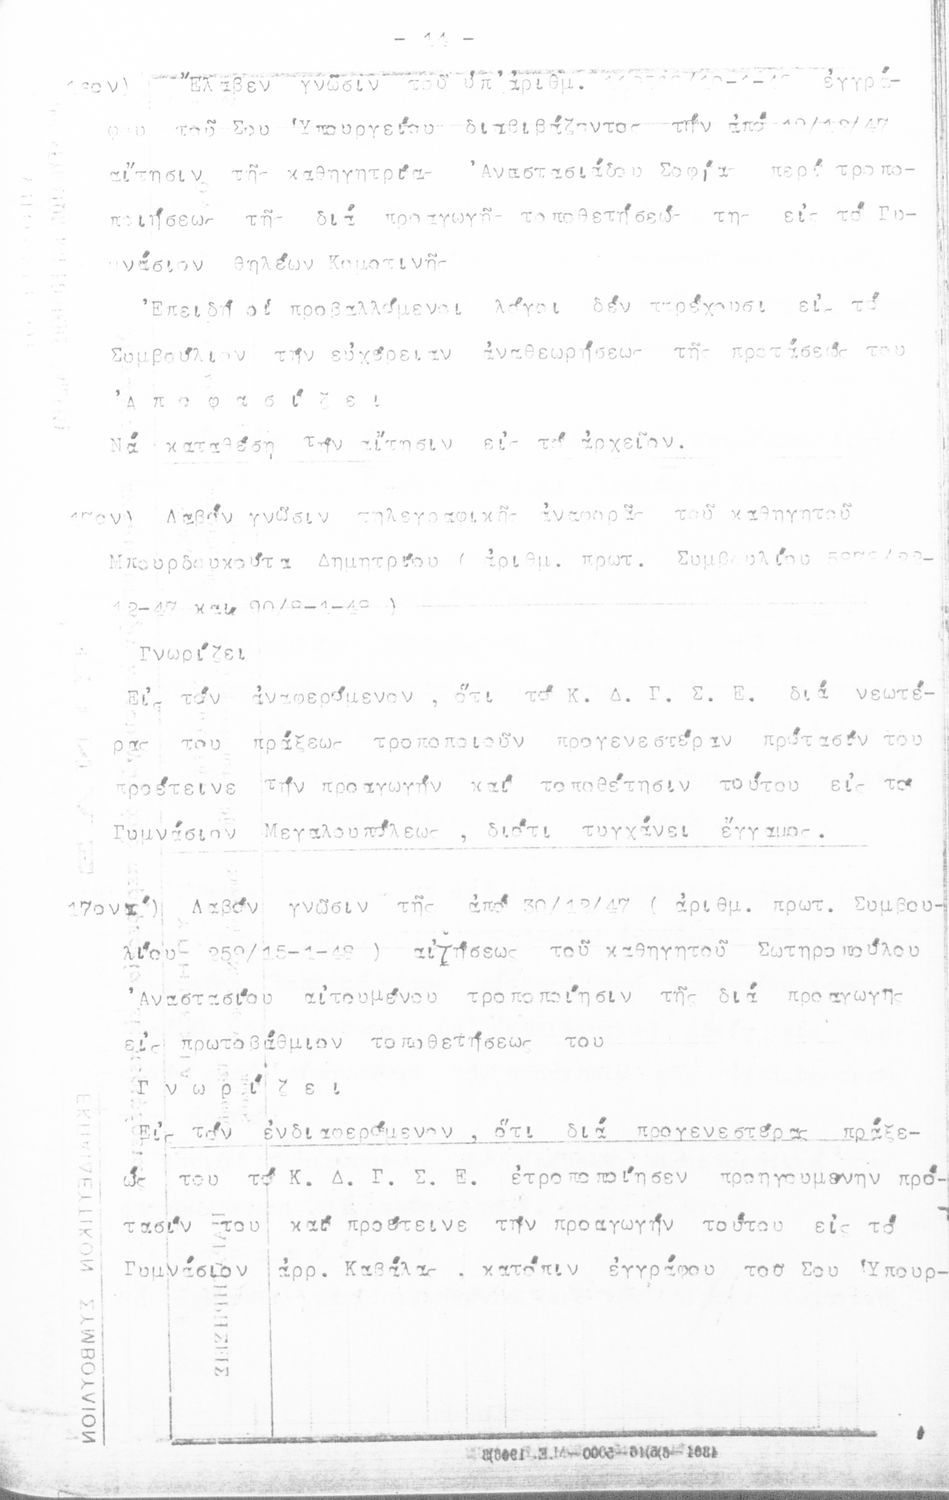 - 11 -
16ον) Ἔλαβεν γνῶσιν τοῦ ὑπ' ἀριθμ. ἐγγρά-
φου τοῦ Σου Ὑπουργείου διαβιβάζοντος τήν ἀπό 10/12/47
αἴτησιν τῆς καθηγητρίας Ἀναστασιάδου Σοφίας περί τροπο-
ποιήσεως τῆς διά προαγωγῆς τοποθετήσεώς της εἰς τό Γυ-
μνάσιον θηλέων Κομοτινῆς
Ἐπειδή οἱ προβαλλόμενοι λόγοι δέν παρέχουσι εἰς τό
Συμβούλιον τήν εὐχέρειαν ἀναθεωρήσεως τῆς προτάσεώς του
Ἀ π ο φ α σ ί ζ ε ι
Νά καταθέση τήν αἴτησιν εἰς τό ἀρχεῖον.
17ον) Λαβόν γνῶσιν τηλεγραφικῆς ἀναφορᾶς τοῦ καθηγητοῦ
Μπουρδουκούτα Δημητρίου ( ἀριθμ. πρωτ. Συμβουλίου
12-47 καί 90/8-1-48 )
Γνωρίζει
Εἰς τόν ἀναφερόμενον , ὅτι τό Κ. Δ. Γ. Σ. Ε. διά νεωτέ-
ρας του πράξεως τροποποιοῦν προγενεστέραν πρότασίν του
προέτεινε τήν προαγωγήν καί τοποθέτησιν τούτου εἰς τό
Γυμνάσιον Μεγαλουπόλεως , διότι τυγχάνει ἔγγαμος.
17ονα') Λαβόν γνῶσιν τῆς ἀπό 30/12/47 ( ἀριθμ. πρωτ. Συμβου-
λίου 259/15-1-48 ) αἰτήσεως τοῦ καθηγητοῦ Σωτηροπούλου
Ἀναστασίου αἰτουμένου τροποποίησιν τῆς διά προαγωγῆς
εἰς πρωτοβάθμιον τοποθετήσεως του
Γ ν ω ρ ί ζ ε ι
Εἰς τόν ἐνδιαφερόμενον , ὅτι διά προγενεστέρας πράξε-
ώς του τό Κ. Δ. Γ. Σ. Ε. ἐτροποποίησεν προηγουμένην πρό-
τασίν του καί προέτεινε τήν προαγωγήν τούτου εἰς τό
Γυμνάσιον ἀρρ. Καβάλας . κατόπιν ἐγγράφου τοῦ Σου Ὑπουρ-
ΕΚΠΑΙΔΕΥΤΙΚΟΝ ΣΥΜΒΟΥΛΙΟΝ